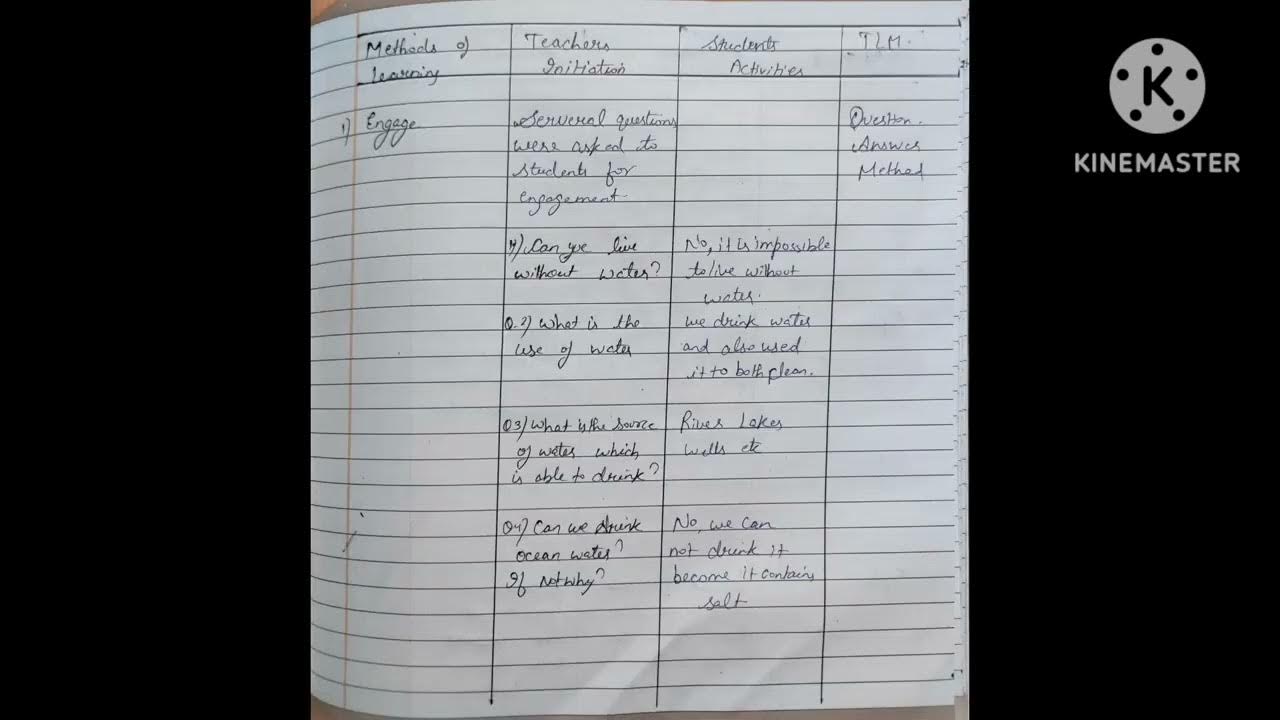 Methods of
Learning
Teachers
Initiation
Students
Activities
TLM.
1) Engage
Serveral questions
were asked to
students for
engagement.
Question.
Answer
Method
Can we live
without water?
No, it is impossible
to live without
water.
Q.2) What is the
use of water
we drink water
and also used
it to both clean.
Q3) What is the source
of water which
is able to drink?
River Lakes
wells etc
Q4) Can we drink
ocean water?
If not why?
No, we can
not drink it
become it contains
salt
K
KINEMASTER